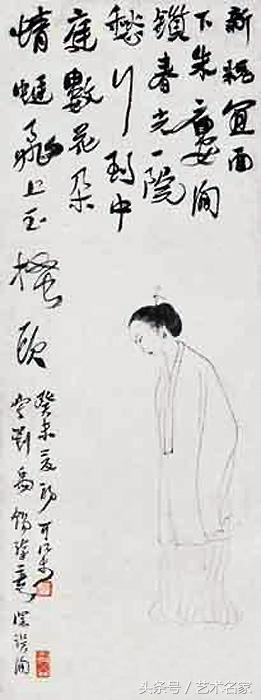 新妝宜面
下朱樓
鎖春光一院
愁行到中
庭數花朵
蜻蜓飛上玉
搔頭
癸未夏
劉禹錫
深誤
头条号／艺术名家